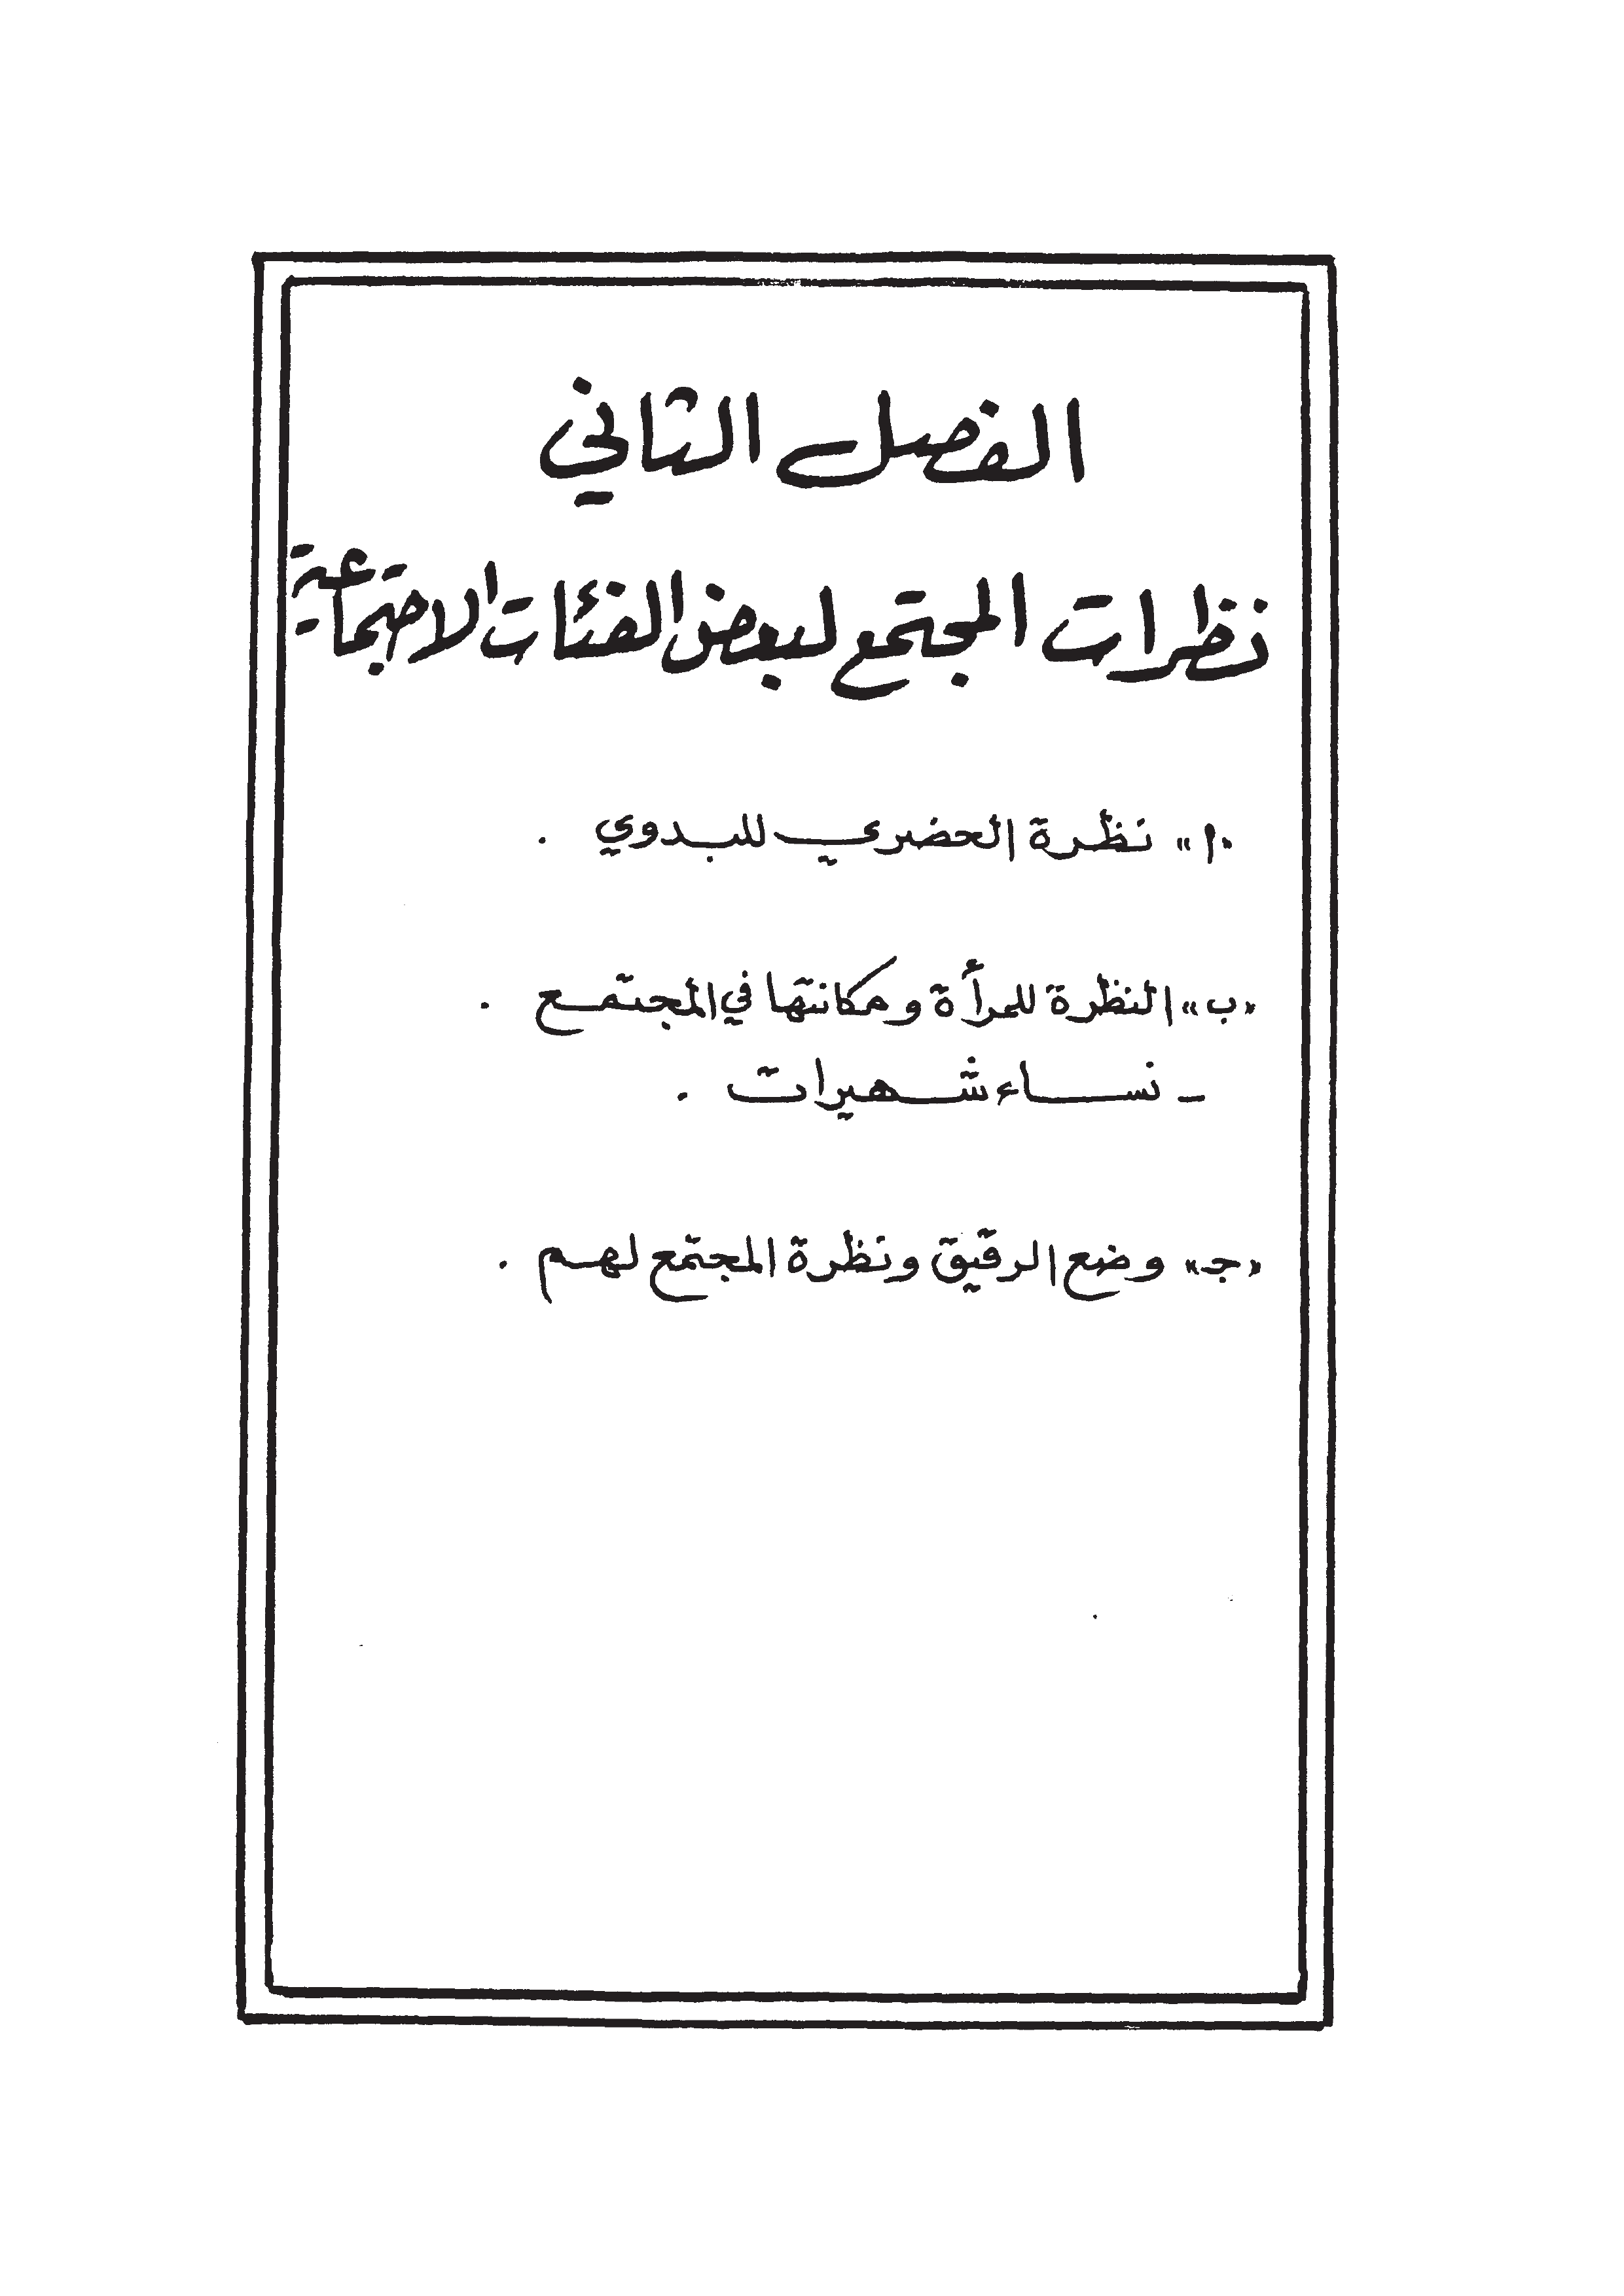 الفصل الثاني
نظرات المجتمع لبعض الفئات الاجتماعية
«ا» نظرة الحضري للبدوي .
«ب» النظرة للمرأة ومكانتها في المجتمع .
- نساء شهيرات .
«جـ» وضع الرقيق ونظرة المجتمع لهم .